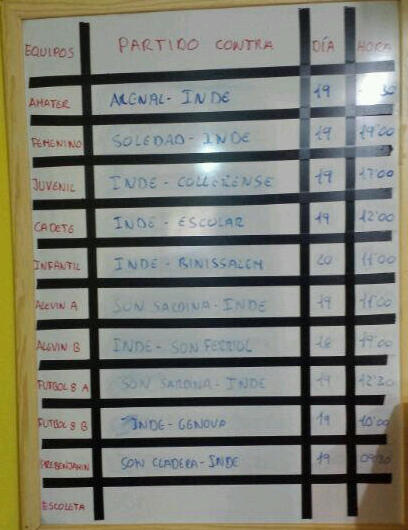 EQUIPOS PARTIDO CONTRA DÍA HORA
AMATER ARENAL - INDE 19 30
FEMENINO SOLEDAD - INDE 19 19'00
JUVENIL INDE - COLLERENSE 19 17'00
CADETE INDE - ESCOLAR 19 12'00
INFANTIL INDE - BINISSALEM 20 11'00
ALEVIN A SON SARDINA - INDE 19 11'00
ALEVIN B INDE - SON FERRIOL 18 19'00
FUTBOL 8 A SON SARDINA - INDE 19 12'30
FUTBOL 8 B INDE - GENOVA 19 10'00
PREBENJAMIN SON CLADERA - INDE 19 09'30
ESCOLETA